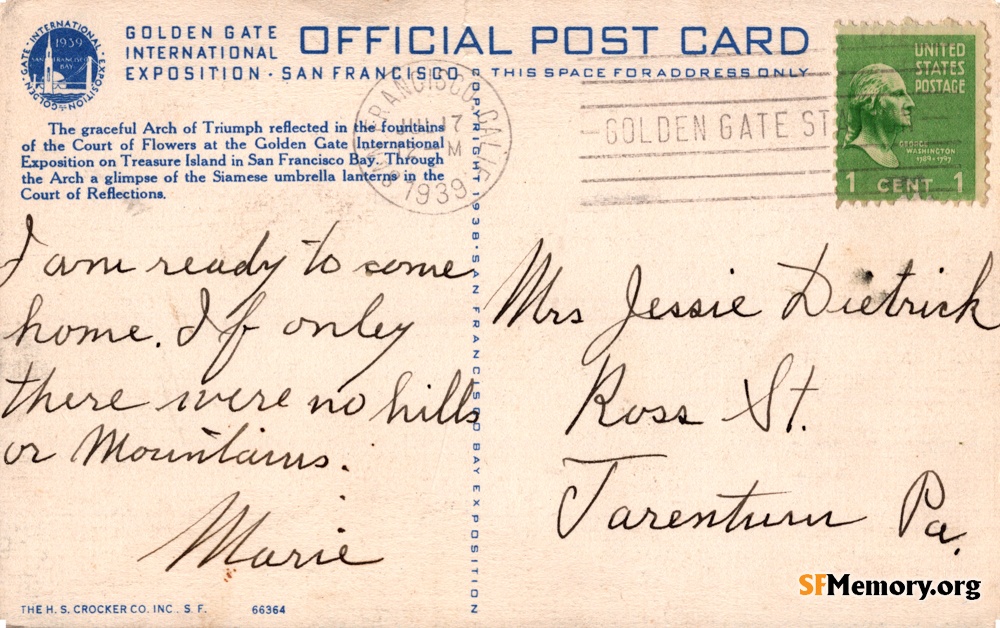 GOLDEN GATE · INTERNATIONAL · EXPOSITION
1939
SAN FRANCISCO
BAY
GOLDEN GATE
INTERNATIONAL
EXPOSITION · SAN FRANCISCO
OFFICIAL POST CARD
THIS SPACE FOR ADDRESS ONLY
The graceful Arch of Triumph reflected in the fountains
of the Court of Flowers at the Golden Gate International
Exposition on Treasure Island in San Francisco Bay. Through
the Arch a glimpse of the Siamese umbrella lanterns in the
Court of Reflections.
FRANCISCO, CALIF.
17
M
1939
GOLDEN GATE
UNITED
STATES
POSTAGE
GEORGE
WASHINGTON
1789-1797
1 CENT 1
COPYRIGHT 1938 · SAN FRANCISCO BAY EXPOSITION
I am ready to come
home. If onley
there were no hills
or Mountains.
Marie
Mrs Jessie Dietrick
Ross St.
Tarentum Pa.
THE H. S. CROCKER CO. INC. S. F. 66364
SFMemory.org